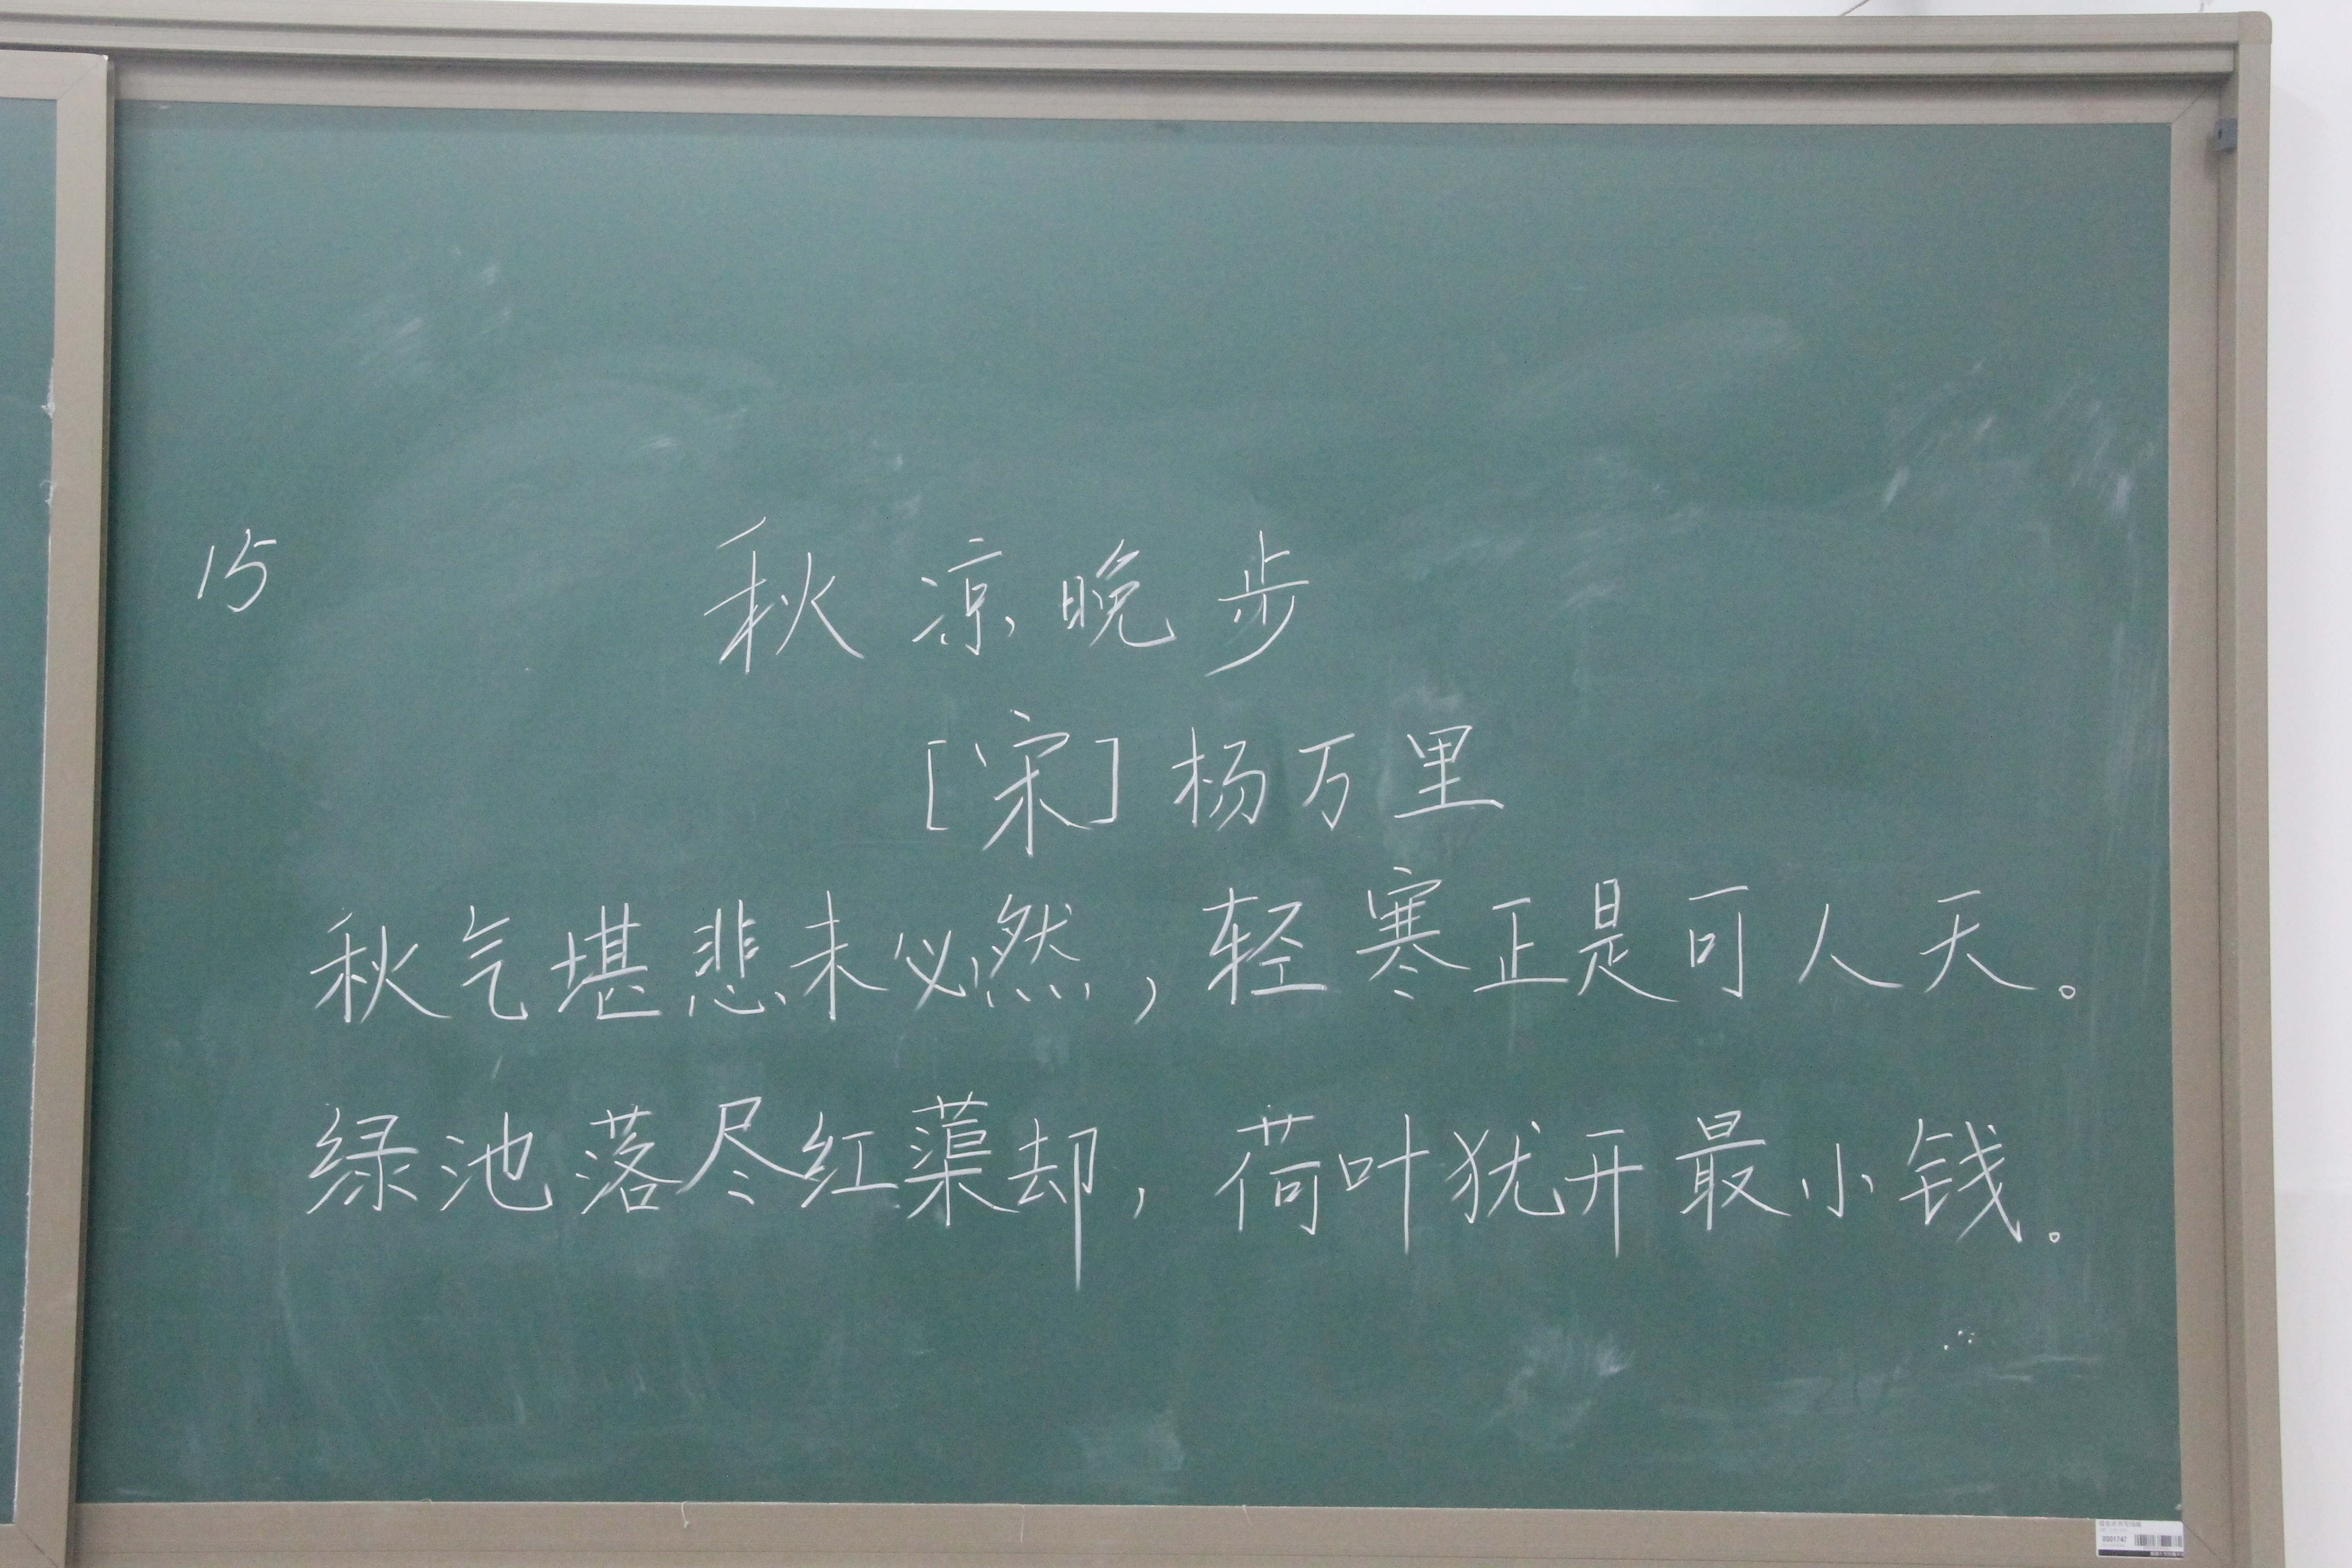 15
秋凉晚步
[宋]杨万里
秋气堪悲未必然,轻寒正是可人天。
绿池落尽红蕖却,荷叶犹开最小钱。
0001747